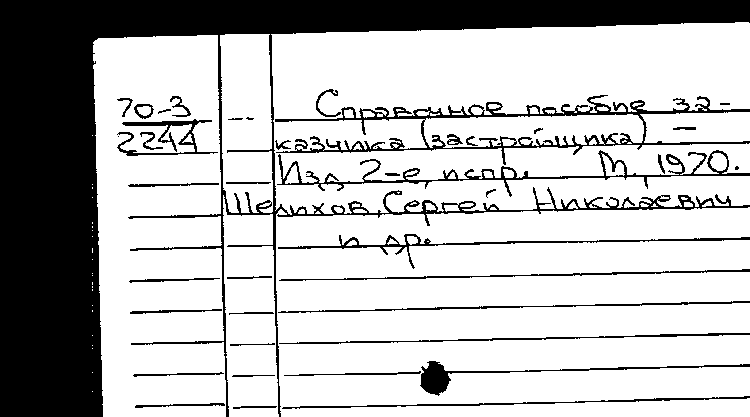 70-3
2244
Справочное пособие за-
казчика (застройщика). –
Изд. 2-е, испр. М., 1970.
Шелихов, Сергей Николаевич
и др.